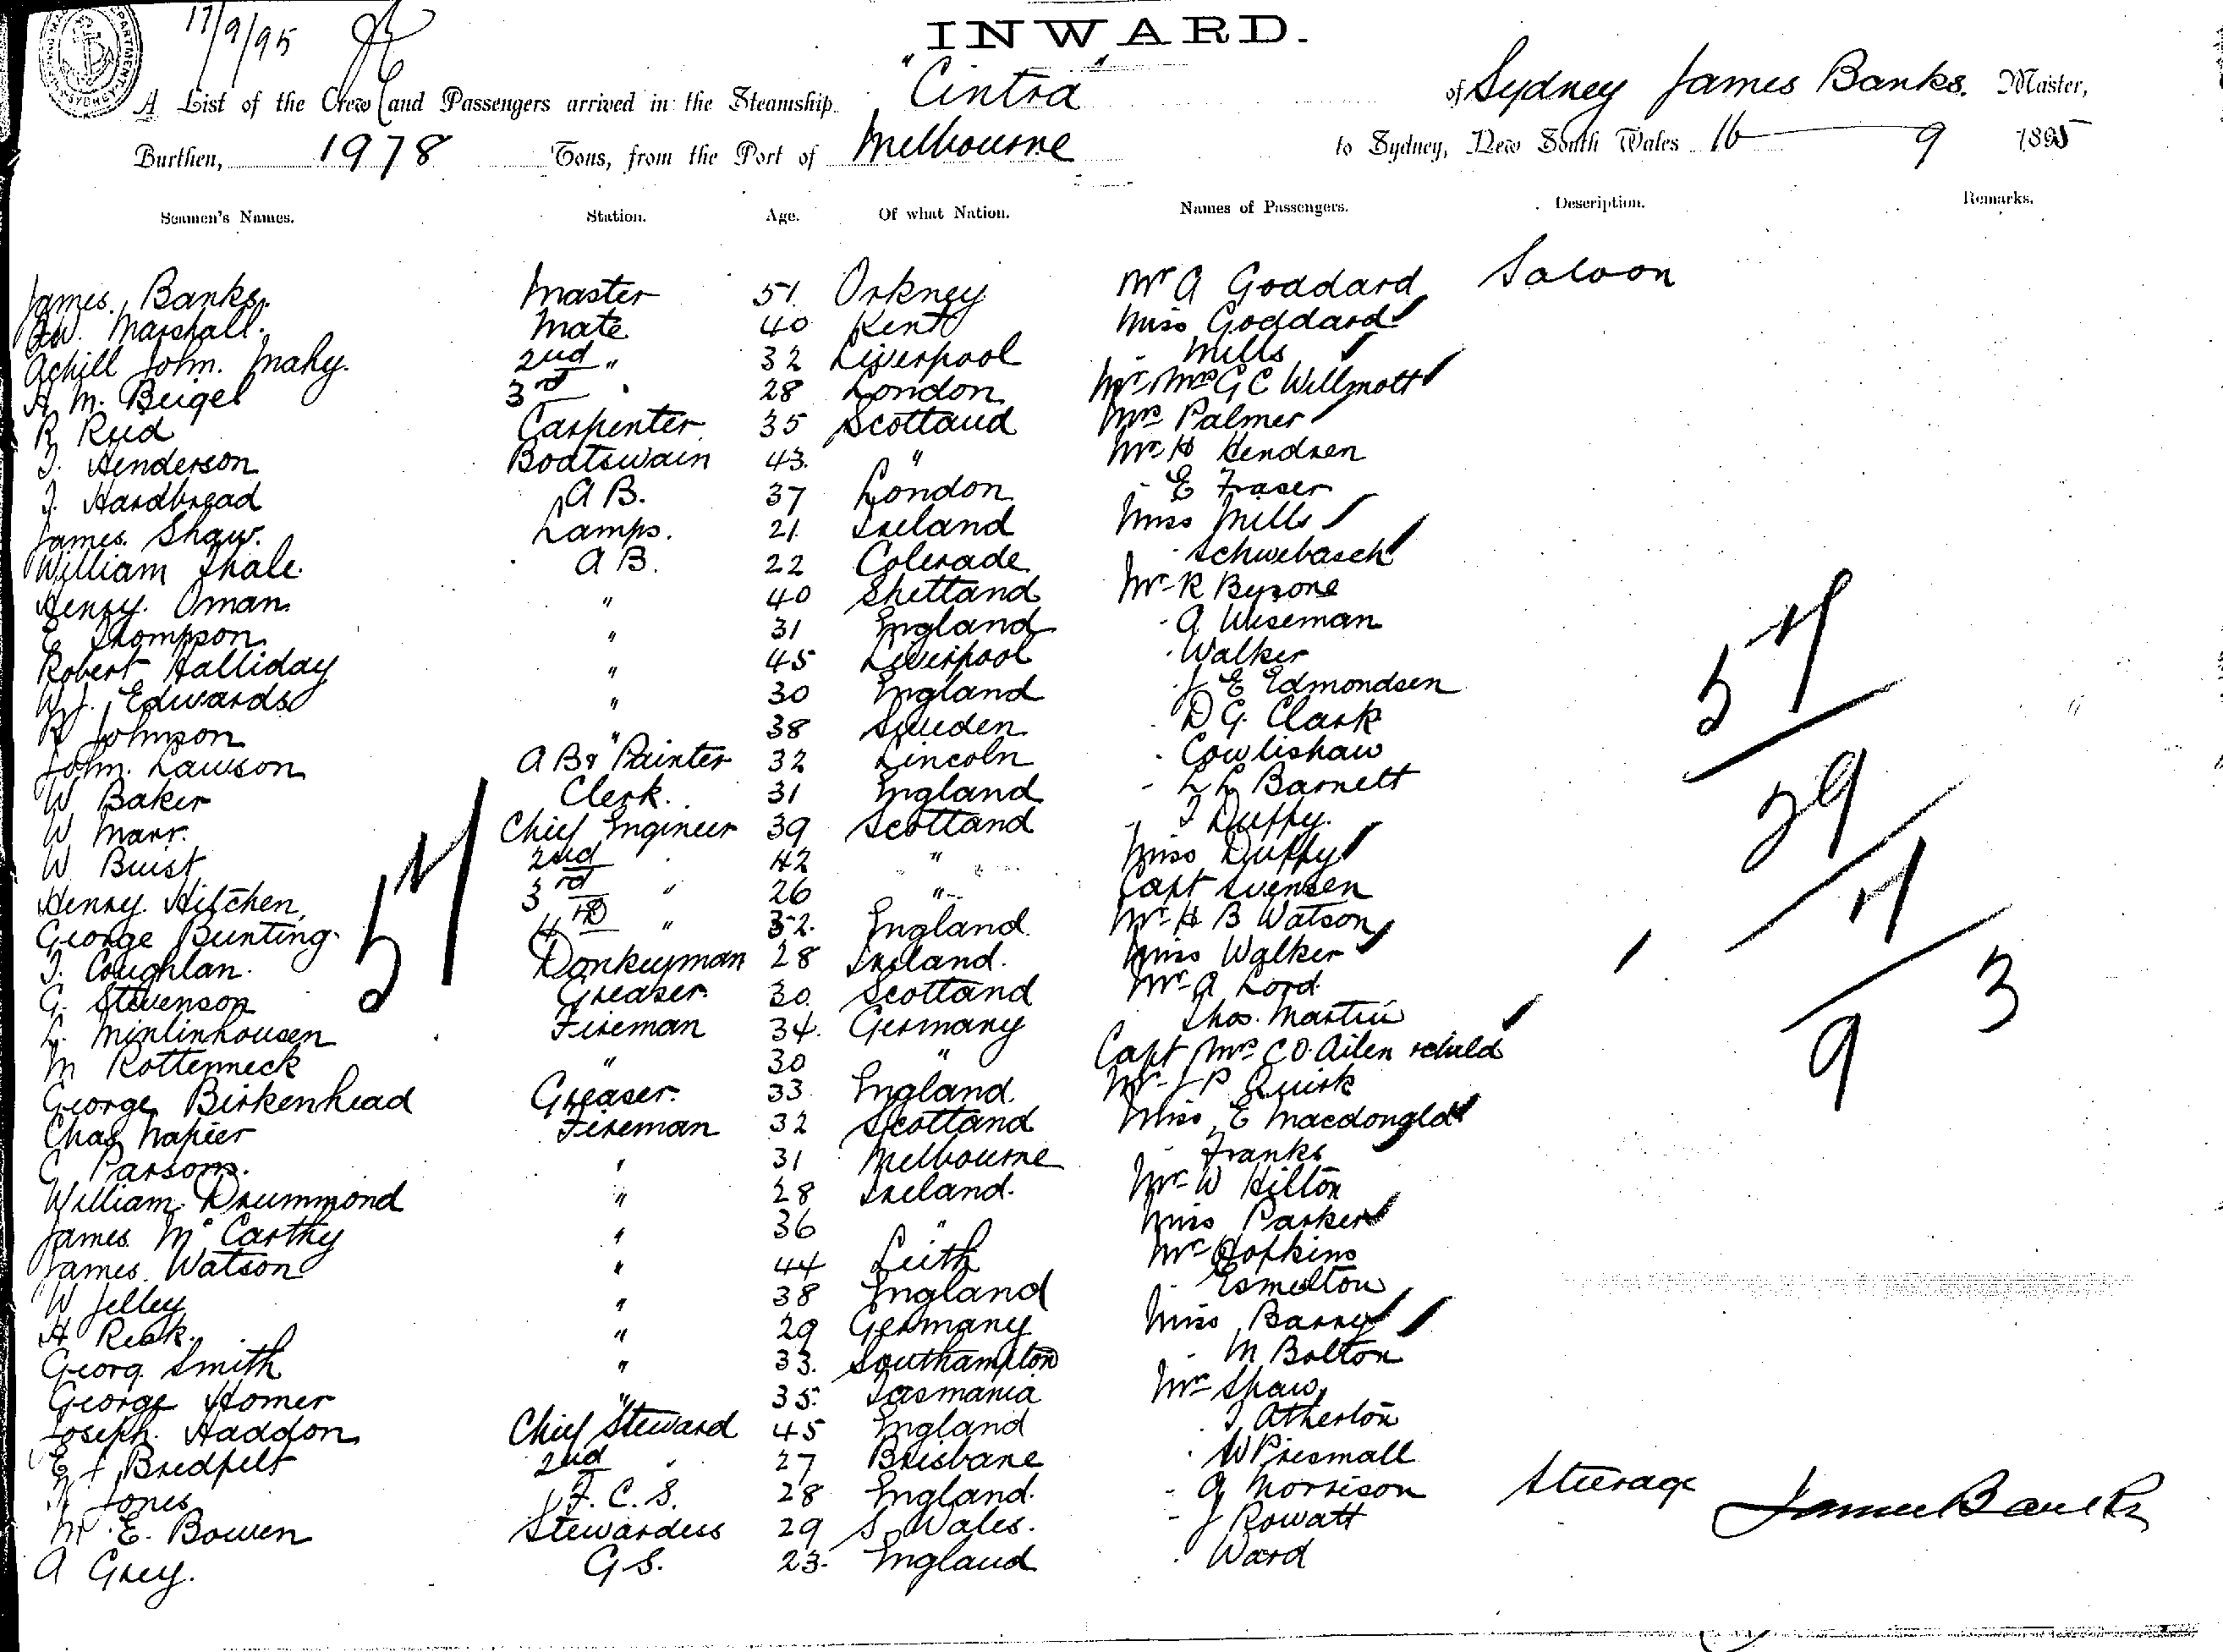 17/9/95
INWARD.
A List of the Crew and Passengers arrived in the Steamship "Cintra" of Sydney James Banks. Master,
Burthen, 1978 Tons, from the Port of Melbourne to Sydney, New South Wales 16 9 1895
Seamen's Names. Station. Age. Of what Nation. Names of Passengers. Description. Remarks.
James Banks. Master 51 Orkney Mr A Goddard Saloon
Marshall. Mate 40 Kent Miss Goddard
Achill John. Mahy. 2nd " 32 Liverpool - Mills
A M. Beigel 3rd 28 London Mr Mrs G C Willmott
R Reid Carpenter 35 Scotland Mrs Palmer
J. Henderson Boatswain 43. " Mr H Hendren
J. Hardbread A B. 37 London - E Fraser
James. Shaw. Lamps. 21 Ireland Miss Mills
William Thale. A B. 22 Colerade - Schwebasch
Henry. Oman. " 40 Shetland Mr R Byrone
E Thompson. " 31 England - A Wiseman
Robert Halliday " 45 Liverpool - Walker
W. J. Edwards " 30 England - J E Edmondsen
R Johnson " 38 Sweden - D G. Clark
John. Lawson " A B & Painter 32 Lincoln - Cowlishaw
W Baker Clerk. 31 England - L L Barnett
W Marr. Chief Engineer 39 Scotland - J Duffy.
W Buist 2nd 42 " Miss Duffy
Henry. Hitchen. 3rd " 26 " Capt Svensen
George Bunting. 4th " 32. England Mr H B Watson
J. Coughlan. Donkeyman 28 Ireland. Miss Walker
G. Stevenson Greaser. 30 Scotland Mr A Lord
L. Minlinhousen Fireman 34. Germany Thos. Martin
M Rottenneck " 30 " Capt Mrs C O. Ailen & child
George Birkenhead Greaser. 33 England. Mr J P Quirk
Chas Napier Fireman 32 Scotland Miss E Macdongld
C Parsons. " 31 Melbourne - Franks
William. Drummond " 28 Ireland. Mr W Hilton
James. McCarthy " 36 " Miss Parker
James. Watson " 44 Leith Mr Hopkins
W Jelley " 38 England - Esmelton
H Reck. " 29 Germany Miss Barry
Georg. Smith " 33. Southampton - M Bolton
George Homer " 35. Tasmania Mr Shaw
Joseph. Haddon Chief Steward 45 England - J Atherton
E J Bredfelt 2nd " 27 Brisbane - W Priesmall
Jones F. C. S. 28 England. - A Morrison Steerage
M E. Bowen Stewardess 29 S. Wales. - J Rowatt
A Grey. G S. 23. England - Ward
57
57
29
9 3
James Banks